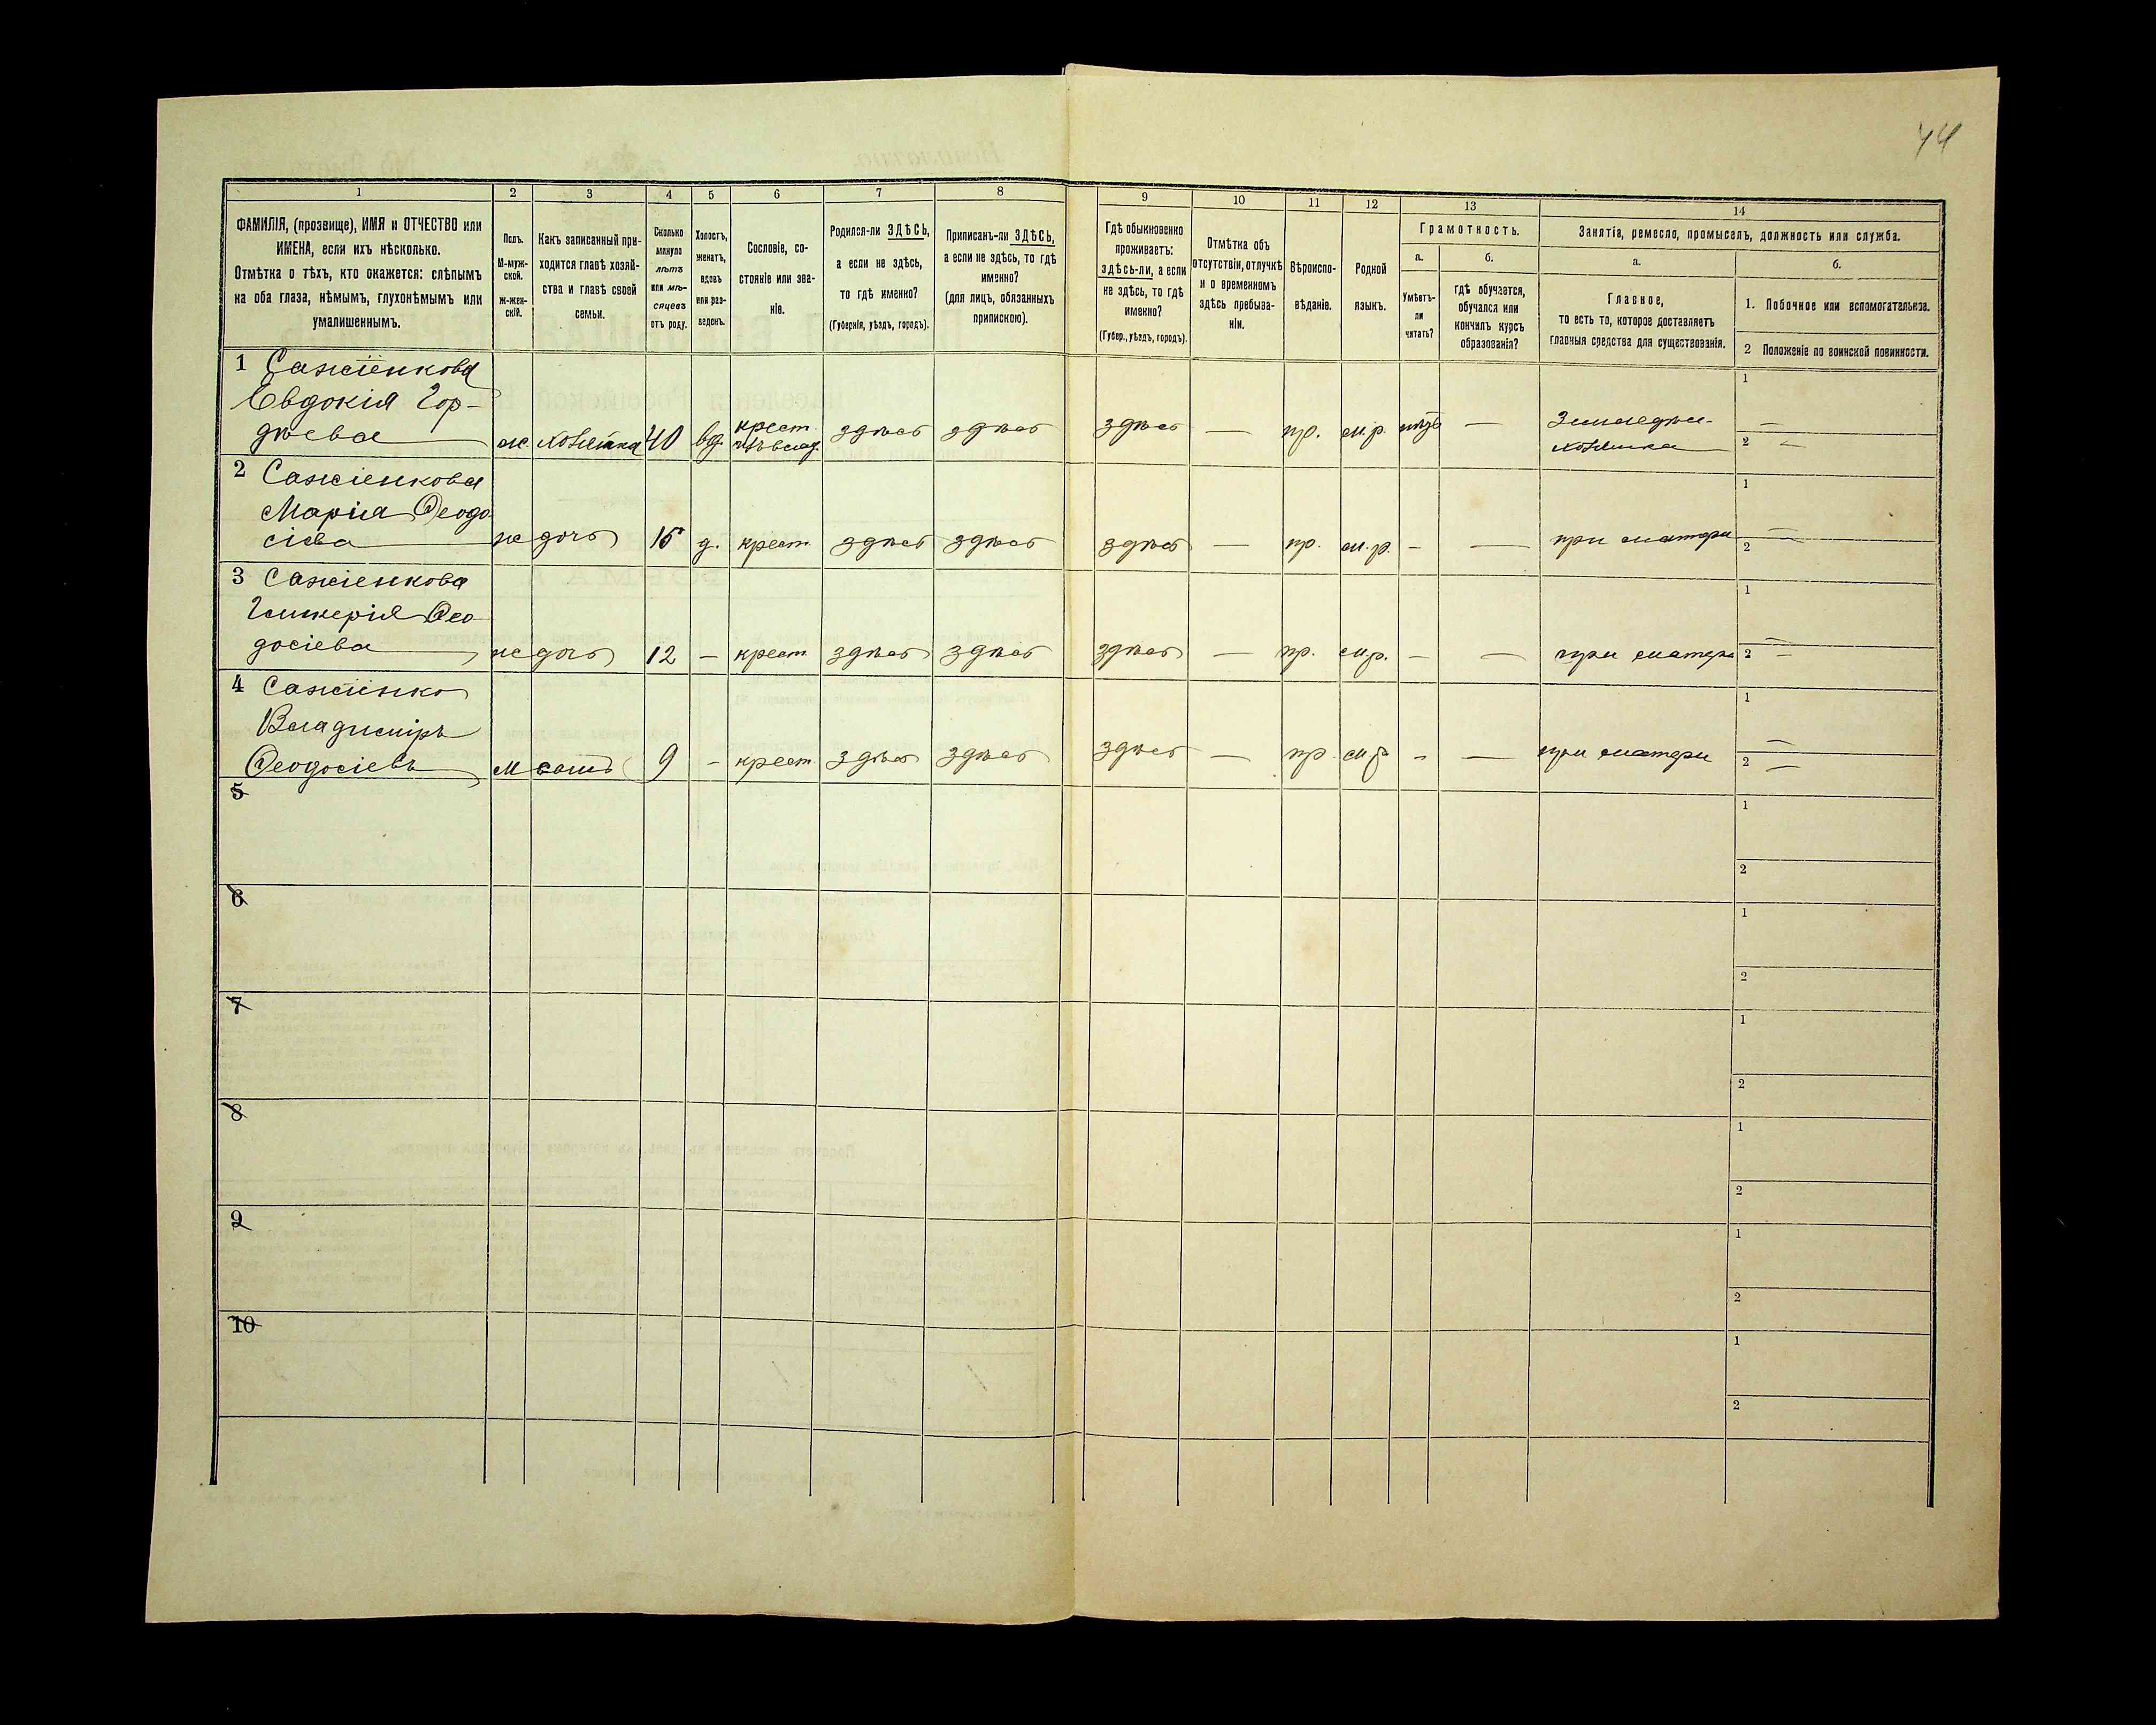 44
1
2
3
4
5
6
7
8
9
10
11
12
13
14
ФАМИЛІЯ, (прозвище), ИМЯ и ОТЧЕСТВО или
ИМЕНА, если ихъ нѣсколько.
Отмѣтка о тѣхъ, кто окажется: слѣпымъ
на оба глаза, нѣмымъ, глухонѣмымъ или
умалишеннымъ.
Полъ.
М-муж-
ской.
ж-жен-
скій.
Какъ записанный при-
ходится главѣ хозяй-
ства и главѣ своей
семьи.
Сколько
минуло
лѣтъ
или мѣ-
сяцевъ
отъ роду.
Холостъ,
женатъ,
вдовъ
или раз-
веденъ.
Сословіе, со-
стояніе или зва-
ніе.
Родился-ли ЗДѢСЬ,
а если не здѣсь,
то гдѣ именно?
(Губернія, уѣздъ, городъ).
Приписанъ-ли ЗДѢСЬ,
а если не здѣсь, то гдѣ
именно?
(для лицъ, обязанныхъ
припискою).
Гдѣ обыкновенно
проживаетъ:
здѣсь-ли, а если
не здѣсь, то гдѣ
именно?
(Губер., уѣздъ, городъ).
Отмѣтка объ
отсутствіи, отлучкѣ
и о временномъ
здѣсь пребыва-
ніи.
Вѣроиспо-
вѣданіе.
Родной
языкъ.
Грамотность.
а.
Умѣетъ-
ли
читать?
б.
гдѣ обучается,
обучался или
кончилъ курсъ
образованія?
Занятія, ремесло, промыселъ, должность или служба.
а.
Главное,
то есть то, которое доставляетъ
главныя средства для существованія.
б.
1. Побочное или вспомогательное.
2 Положеніе по воинской повинности.
1 Сажіенкова
Евдокія Гор-
дѣева ж. хозяйка 40 вд. крест. здѣсь здѣсь здѣсь — пр. м.р. — —
хозяйка
1 —
2 —
2 Сажіенкова
Марія Ѳеодо
сіева ж дочь 15 д. крест. здѣсь здѣсь здѣсь — пр. м.р. - — при матери
1 —
2 —
3 Сажіенкова
Гликерія Ѳео
досіева ж дочь 12 — крест здѣсь здѣсь здѣсь — пр. м.р. - — при матери
1 —
2 —
4 Сажіенко
Владиміръ
Ѳеодосіевъ м сынъ 9 - крест здѣсь здѣсь здѣсь — пр. м.р. - — при матери
1 —
2 —
5
1
2
6
1
2
7
1
2
8
1
2
9
1
2
10
1
2